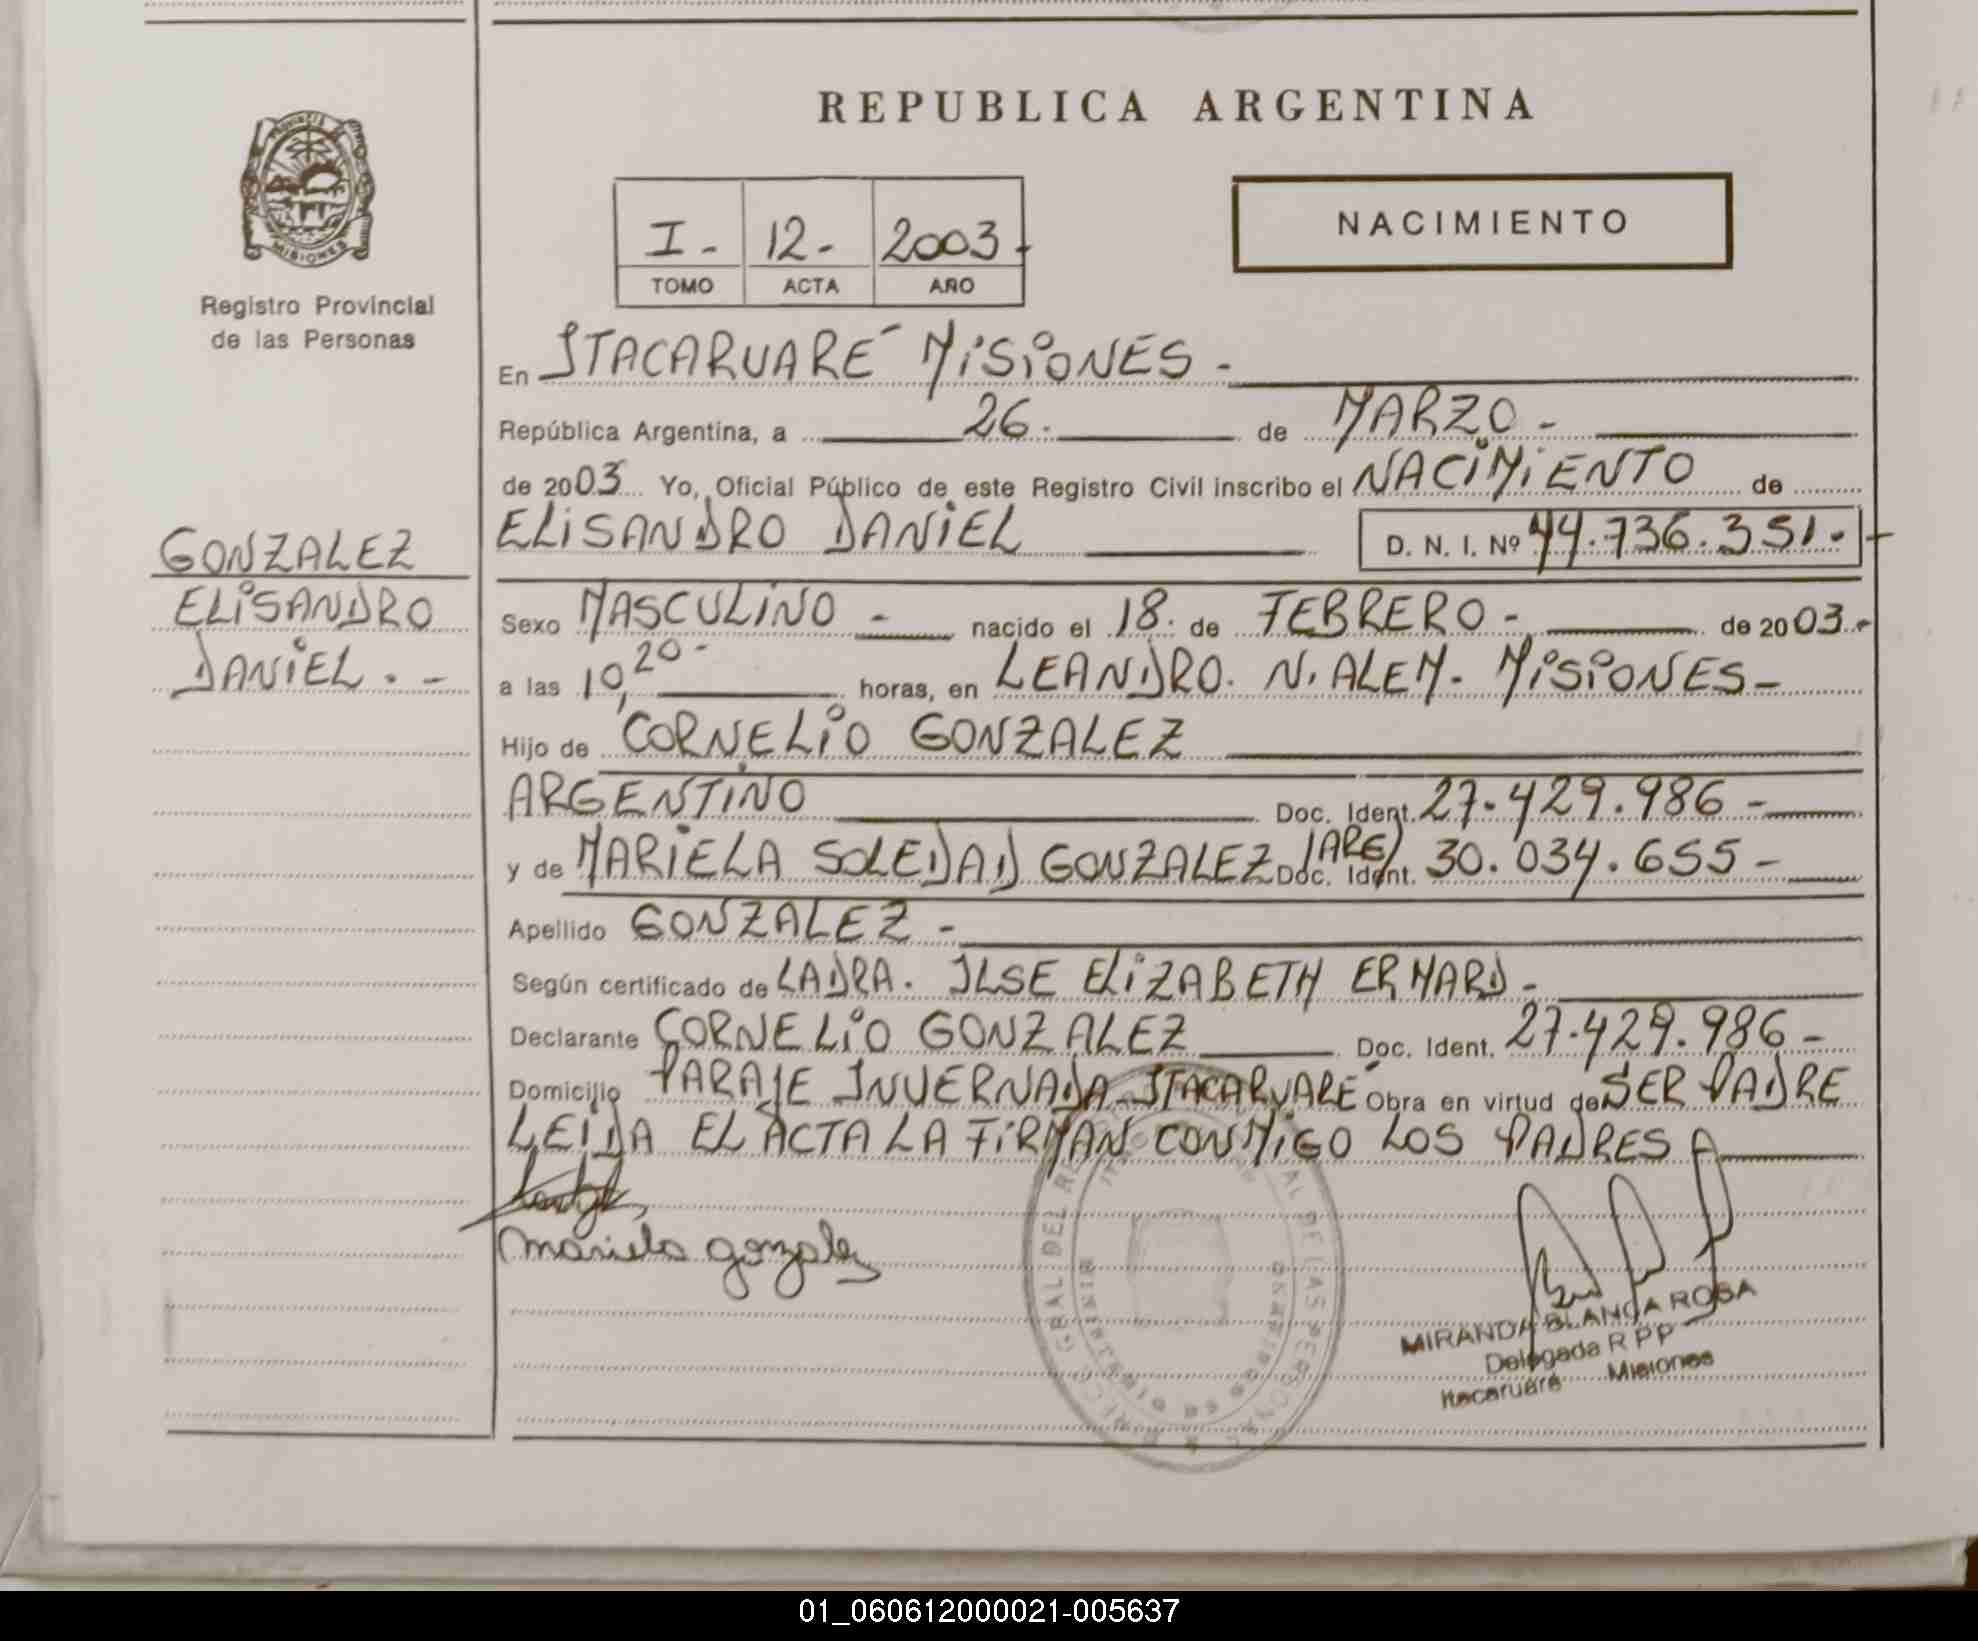 REPUBLICA ARGENTINA
PROVINCIA DE
MISIONES
Registro Provincial
de las Personas
I - 12 - 2003 -
TOMO ACTA AÑO
NACIMIENTO
En ITACARUARÉ MISIONES -
República Argentina, a 26. de MARZO -
de 2003 Yo, Oficial Público de este Registro Civil inscribo el NACIMIENTO de
ELISANDRO DANIEL D. N. I. Nº 44.736.351.-
GONZALEZ
ELISANDRO
DANIEL . -
Sexo MASCULINO - nacido el 18. de FEBRERO - de 2003.-
a las 10,20- horas, en LEANDRO. N. ALEM. MISIONES -
Hijo de CORNELIO GONZALEZ
ARGENTINO Doc. Ident. 27.429.986 -
y de MARIELA SOLEDAD GONZALEZ (ARG) Doc. Ident. 30.034.655 -
Apellido GONZALEZ -
Según certificado de LADRA. ILSE ELIZABETH ERHARD -
Declarante CORNELIO GONZALEZ Doc. Ident. 27.429.986 -
Domicilio PARAJE INVERNADA - ITACARUARÉ Obra en virtud de SER PADRE
LEIDA EL ACTA LA FIRMAN CONMIGO LOS PADRES
Mariela gonzalez
MIRANDA BLANCA ROSA
Delegada R P P
Itacaruaré Misiones
01_060612000021-005637